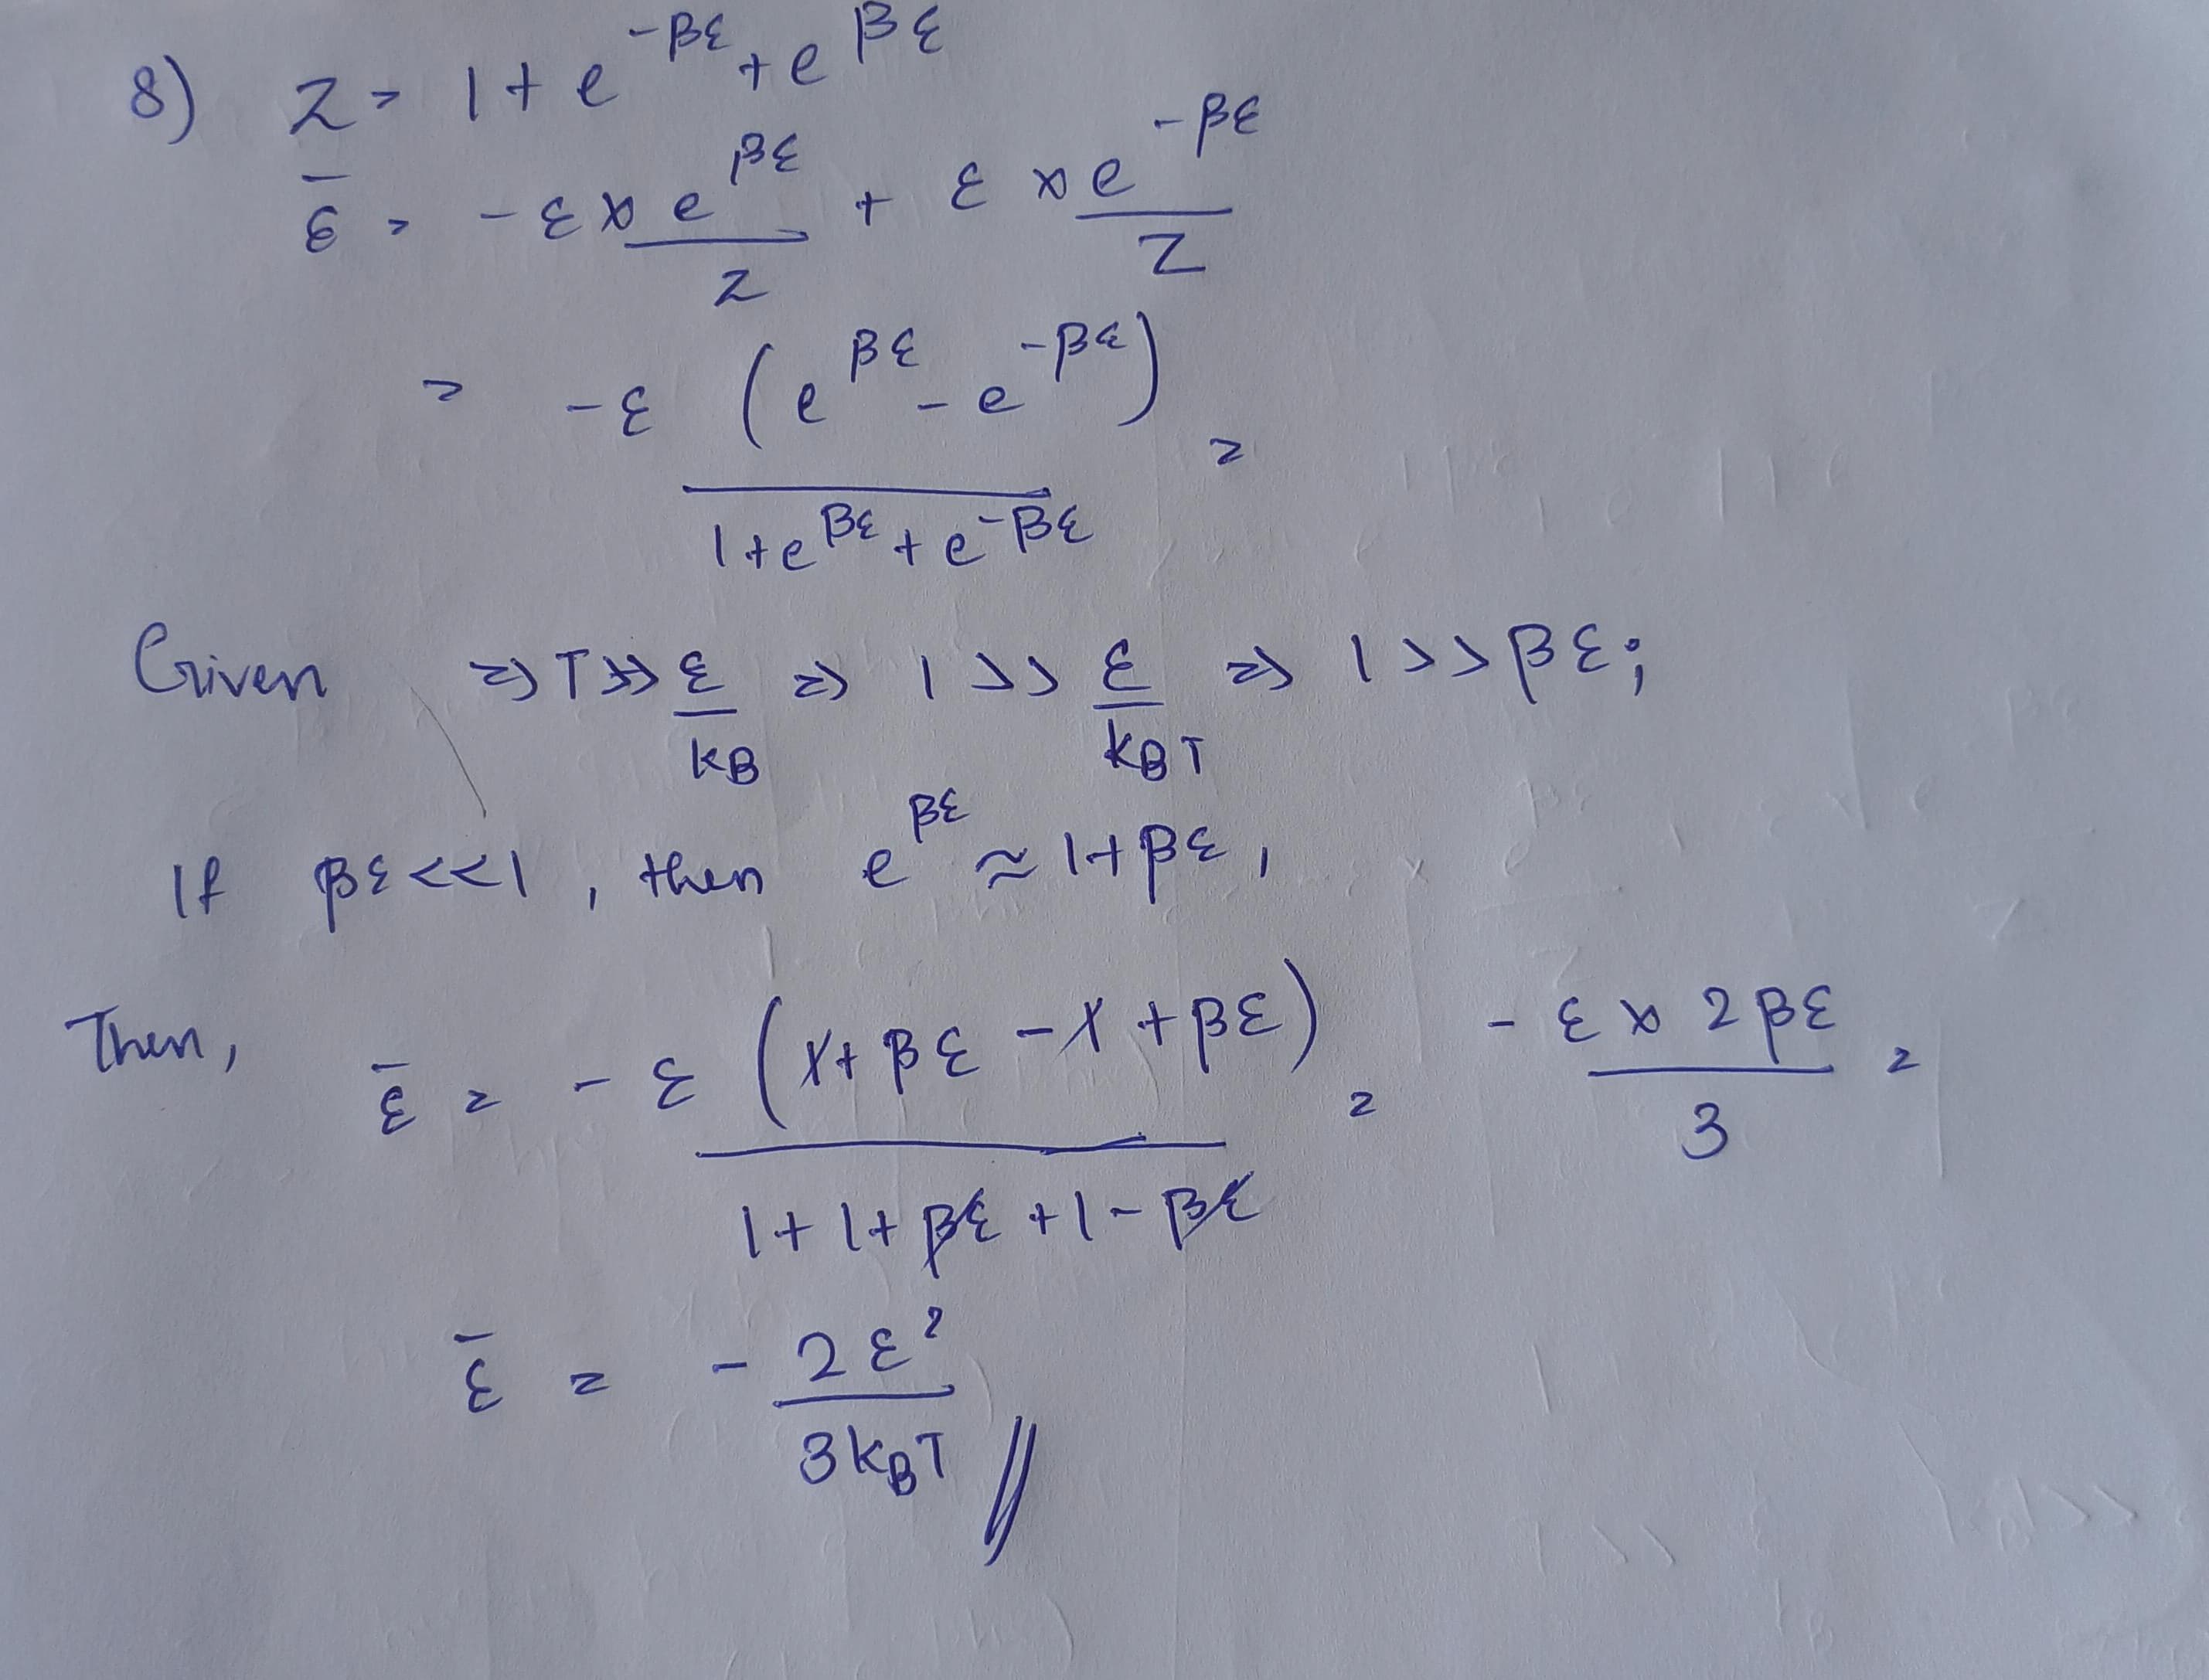 8) Z = 1 + e^{-βε} + e^{βε}
ε̄ = -ε × e^{βε}/Z + ε × e^{-βε}/Z
= -ε (e^{βε} - e^{-βε}) / 1 + e^{βε} + e^{-βε} =
Given ⇒ T >> ε/k_B ⇒ 1 >> ε/k_BT ⇒ 1 >> βε;
If βε << 1, then e^{βε} ≈ 1 + βε,
Then, ε̄ = -ε (1 + βε - 1 + βε) / 1 + 1 + βε + 1 - βε = -ε × 2βε / 3 =
ε̄ = - 2ε² / 3k_BT //